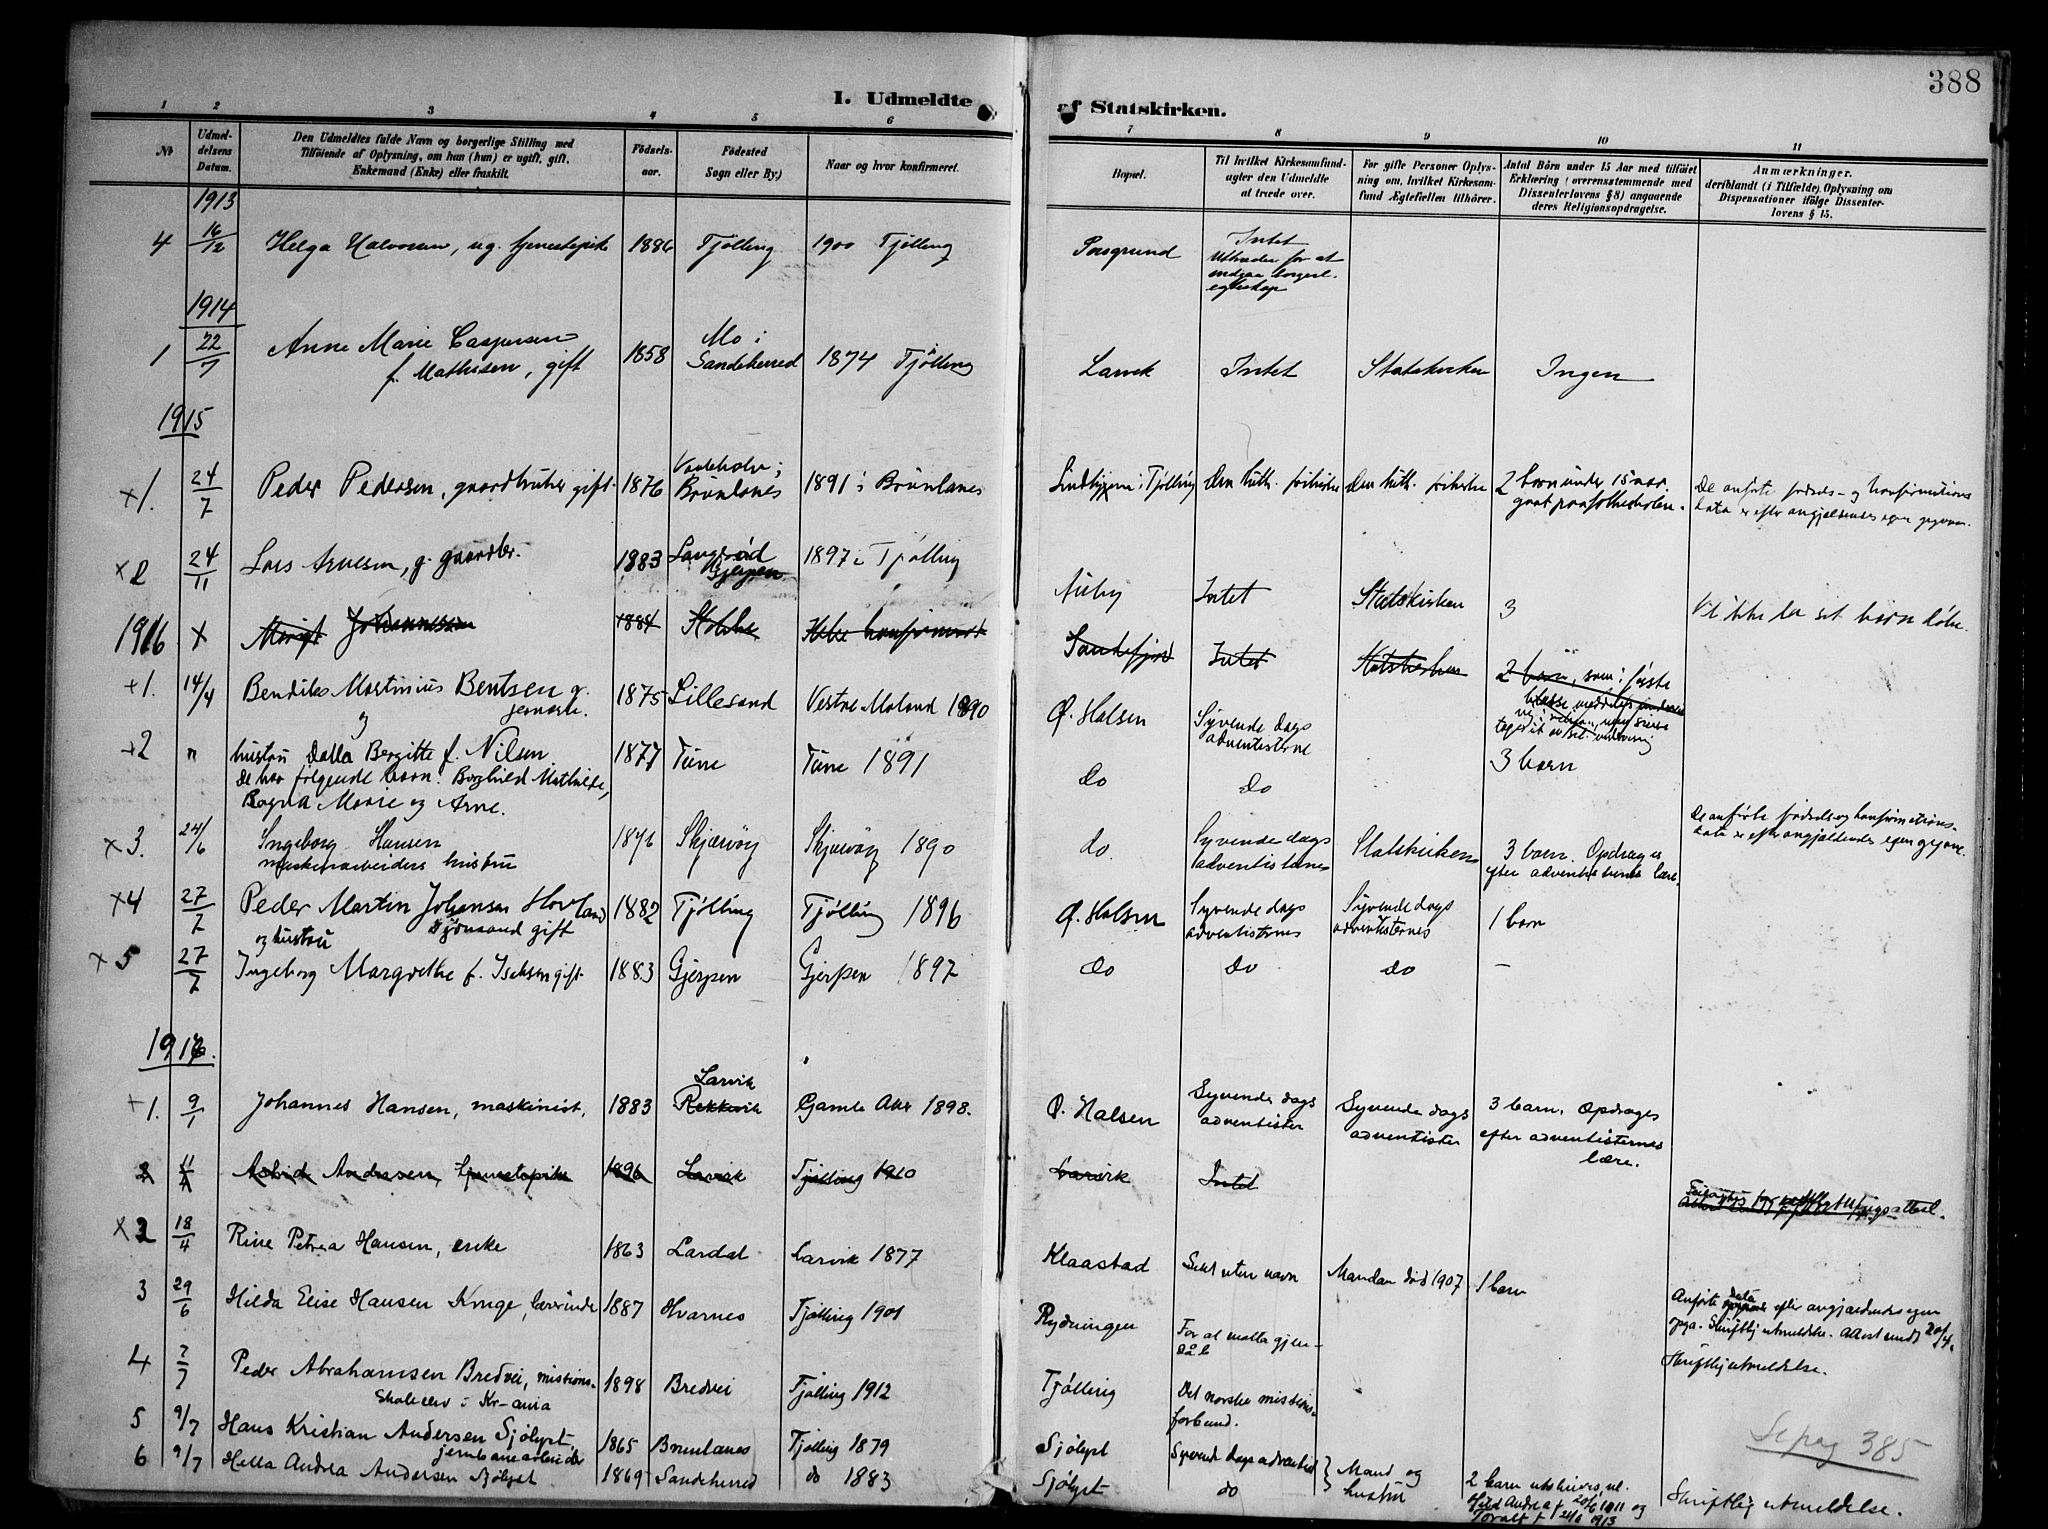 388
I. Udmeldte af Statskirken.
1 2 3 4 5 6 7 8 9 10 11
No
Udmeldelsens Datum.
Den Udmeldtes fulde Navn og borgerlige Stilling med
Tilføiende af Oplysning, om han (hun) er ugift, gift,
Enkemand (Enke) eller fraskilt.
Fødselsaar.
Fødested
Sogn eller By.)
Naar og hvor konfirmeret.
Bopæl.
Til hvilket Kirkesamfund
agter den Udmeldte
at træde over.
For gifte Personer Oplysning
om, hvilket Kirkesamfund
Ægtefællen tilhører.
Antal Børn under 15 Aar med tilføiet
Erklæring (overensstemmende med
Dissenterlovens § 8) angaaende
deres Religionsopdragelse.
Anmærkninger,
deriblandt (i Tilfælde) Oplysning om
Dispensationer ifølge Dissenterlovens
§ 15.
1913
4 16/12 Helga Halvorsen, ug. tjenestepike 1886 Tjølling 1900 Tjølling Porsgrund Intet
Uttræder for at
indgaa borgerl.
egteskap
1914
1 22/7 Anne Marie Caspersen
f. Mathisen, gift 1858 Mo i
Sandeherred 1874 i Tjølling Larvik Intet Statskirken Ingen
1915
x1. 24/7 Peder Pedersen, gaardbruker gift 1876
Brunlanes 1891 i Brunlanes i Tjølling Den luth. frikirke Den luth. frikirke 2 børn under 15 aar
De anførte fødsels- og konfirmations
data er efter angjældendes egen
x2 24/11 Lars g. gaardbr. 1883 Langerød
Gjerpen 1897 i Tjølling Intet Statskirken 3 Vil ikke la sit barn døbe.
1916 x Johannessen 1884 Ikke konfirmeret Sandefjord Intet Statskirken 2 børn, som i første
+1. 14/4 Martinius Bentsen g. 1875 Lillesand Vestre Moland 1890 Ø. Halsen Syvende dags
adventisterne
og
+2 " hustru Bergitte f. Nilsen 1877 Tune Tune 1891 do do 3 barn
De har følgende barn: Borghild Mathilde,
Magna Marie og Arne.
x3. 24/6 Ingeborg Hansen
maskinarbeiders hustru 1876 Skjærvøy Skjærvøy 1890 do. Syvende dags
adventisterne Statskirken 3 barn. Opdrages
efter adventisternes lære.
De anførte fødsels og konfirmations-
data er efter angjældendes egen
x4 27/7 Peder Martin Johansen Hovland
gift 1882 Tjølling Tjølling 1896 Ø. Halsen Syvende dags
adventisternes Syvende dags
adventisternes 1 barn
og hustru
x5 27/7 Ingeborg Margrethe f. Isaksen gift 1883 Gjerpen Gjerpen 1897 do do do -
+1. 9/1 Johannes Hansen, maskinist. 1883 Larvik
Rekkevik Gamle Aker 1898. Ø. Halsen Syvende dags
adventister Syvende dags
adventister 3 barn. Opdrages
efter adventisternes
lære.
Astrid Andersen, tjenestepike 1896 Larvik Tjølling 1910 Larvik Intet
18/4 Rine Petrea Hansen, enke 1863 Lardal Larvik 1877 Klaastad Sekt uten navn Manden død 1907 1 barn
3 29/6 Hilda Elise Hansen Kruge, lærerinde 1887 Hvarnes Tjølling 1901 Rydningen For at motta gjen-
dåb
Anførte data efter angjældendes egen
opga. Skriftlig utmeldelse.
4 7/7 Peder Abrahamsen Bredvei, missions-
skoleelev i Kr-ania 1898 Bredvei Tjølling 1912 Tjølling Det norske missions-
forbund. Skriftlig utmeldelse.
5 9/7 Hans Kristian Andersen Sjølyst,
jernbanearbeider 1865 Brunlanes Tjølling 1879 Sjølyst Syvend dags adventist } Mand og
hustru
6 9/7 Andrea Andersen Sjølyst 1869 Sandeherred do 1883 Sjølyst do 2 barn utskrives, nl.
Andrea f. 20/6 1911 og
Toralf f. 1913 Skriftlig utmeldelse.
Se pag 385